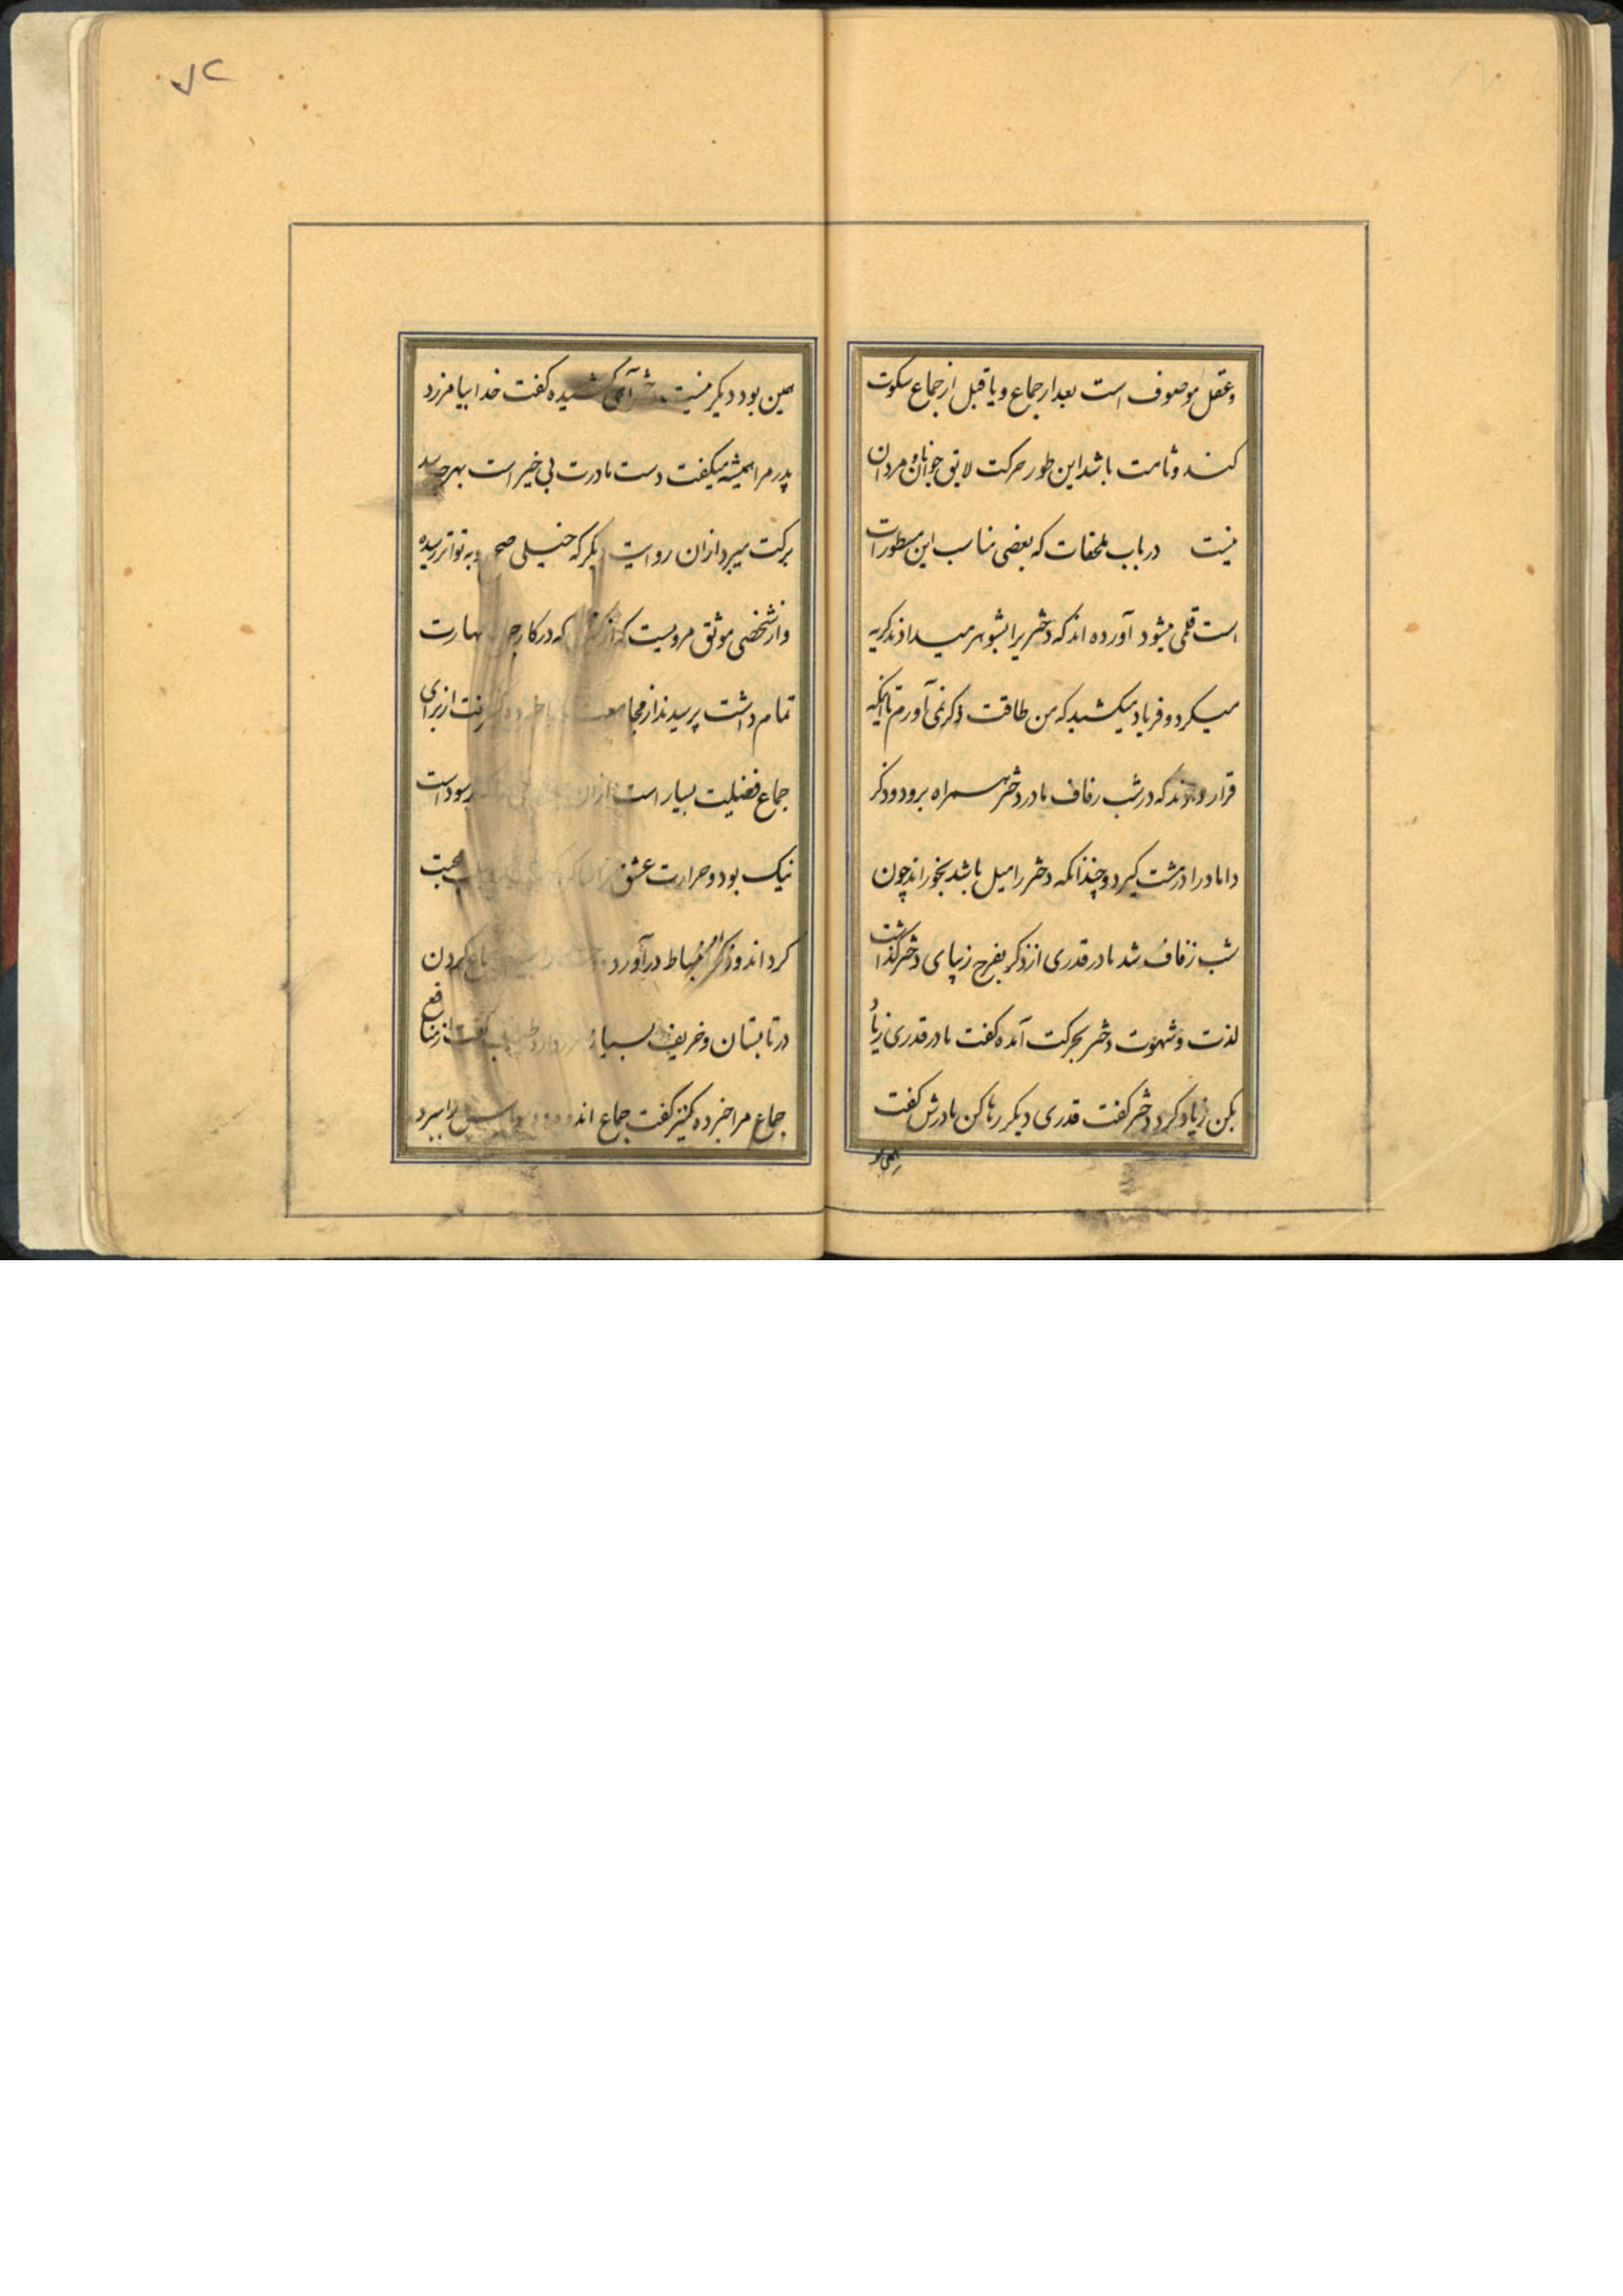 وعقل موصوف است بعد از جماع و یا قبل از جماع سکوت
کنند و ثامت باشد این طور حرکت لایق جوانان و مردان
نیست در باب ملحقات که بعضی مناسب این مسطورات
است قلمی میشود آورده اند که دختریرا بشوهر میدادند کریه
میکرد و فریاد میکشید که من طاقت ذکر نمی آورم تا اینکه
قرار دادند که در شب زفاف مادر دختر همراه برود و ذکر
داماد را در مشت کیرد و چندانکه دختر را میل باشد بخوراند چون
شب زفاف شد مادر قدری از ذکر بفرج زیبای دختر گذاشت
لذت و شهوت دختر بحرکت آمده کفت مادر قدری زیاد
بکن زیاد کرد دختر کفت قدری دیکر رها کن مادرش کفت
همین بود
همین بود دیکر نیست دختر آهی کشیده کفت خدا بیامرزد
پدر مرا همیشه میکفت دست مادرت بی خیر است بهر چه رسد
برکت میبرد از آن روایت دیکر که خیلی صحیح و به تواتر رسیده
و از شخصی موثق مرویست که از که در کار جماع مهارت
تمام داشت پرسیدند از مجامعت کفت از برای
جماع فضلیت بسیار است از آن سود است
نیک بود و حرارت عشق محبت
کرداند و ذکر را به انبساط در آورد جماع کردن
در تابستان و خریف بسیار ضرر دارد طبیب کفت از منافع
جماع مرا خبر ده کنیز کفت جماع اندوه و را ببرد
۷۲